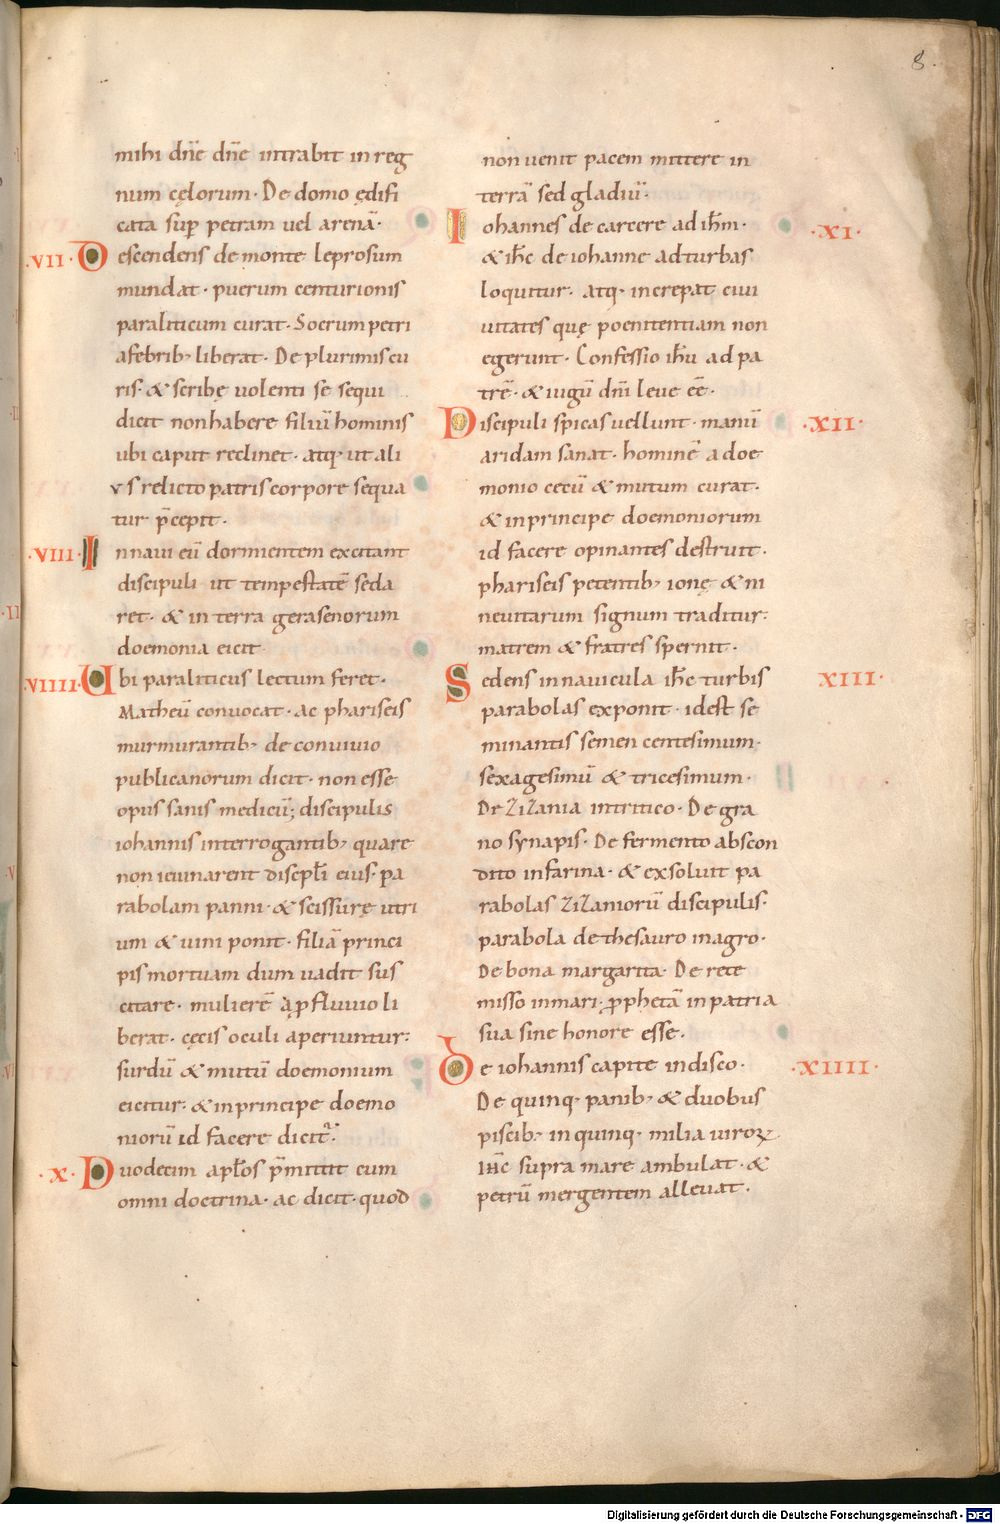 8.
mihi dn̄e dn̄e intrabit in reg
num cęlorum · De domo ędifi
cata sup̱ petram uel arenā ·
·VII· Descendens de monte leprosum
mundat · puerum centurionis
paraliticum curat · Socrum petri
a febrib; liberat · De plurimis cu
ris · & scribę uolenti se sequi
dicit non habere filiū hominis
ubi caput reclinet · atq· ut ali
us relicto patris corpore sequa
tur p̄cepit ·
·VIII· In naui eū dormientem excitant
discipuli ut tempestatē seda
ret · & in terra gerasenorum
doemonia eicit
·VIIII· Ubi paraliticus lectum feret ·
Matheū conuocat · ac phariseis
murmurantib; de conuiuio
publicanorum dicit · non esse
opus sanis medicū; discipulis
iohannis interrogantib; quare
non ieiunarent discipl̄i eius · pa
rabolam panni · & scissurę utri
um & uini ponit · filiā princi
pis mortuam dum uadit sus
citare · mulierē a p̱fluuio li
berat · cęcis oculi aperiuntur:
surdū & mutū doemonium
eicitur · & in principe doemo
niorū id facere dicit̄ ·
·X· Duodecim apl̄os p̄mittit cum
omni doctrina · ac dicit · quod
non uenit pacem mittere in
terrā sed gladiū ·
Iohannes de carcere ad ih̄m · ·XI·
& ih̄c de iohanne ad turbas
loquitur · atq· increpat ciui
uitates quę poenitentiam non
egerunt · Confessio ih̄u ad pa
trē · & iugū dn̄i leue eē ·
Discipuli spicas uellunt · manū ·XII·
aridam sanat · hominē a doe
monio cecū & mutum curat ·
& in principe doemoniorum
id facere opinantes destruit ·
phariseis petentib; ionę & ni
neuitarum signum traditur:
matrem & fratres spernit ·
Sedens in nauicula ih̄c turbis ·XIII·
parabolas exponit · idest se
minantis semen centesimum ·
sexagesimū & tricesimum ·
De zizania in tritico · De gra
no synapis · De fermento abscon
dito in farina · & exsoluit pa
rabolas zizaniorū discipulis ·
parabola de thesauro in agro ·
De bona margarita · De rete
misso in mari · p̱phetā in patria
sua sine honore esse ·
De iohannis capite in disco · ·XIIII·
De quinq· panib; & duobus
piscib; in quinq· milia uiroꝝ
ih̄c supra mare ambulat · &
petrū mergentem alleuat ·
Digitalisierung gefördert durch die Deutsche Forschungsgemeinschaft - DFG